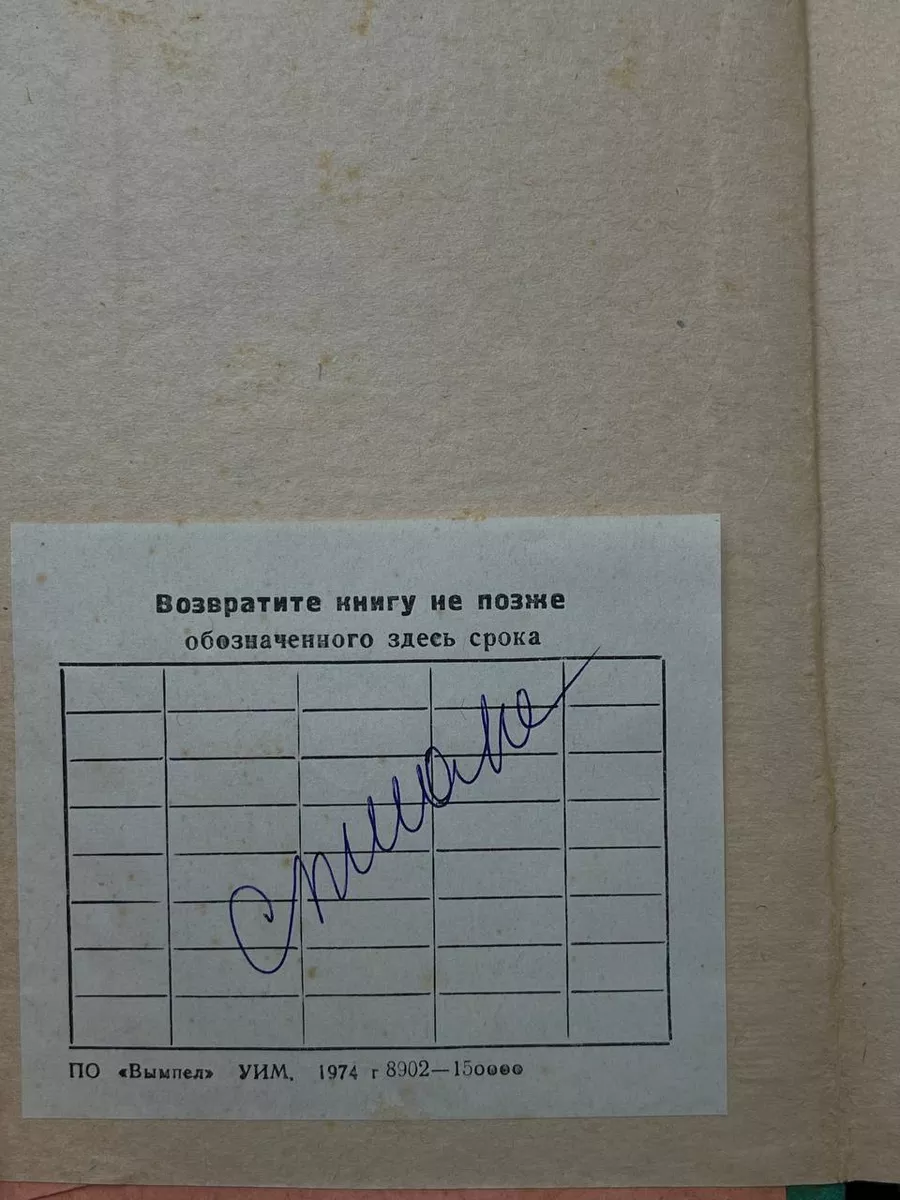 Возвратите книгу не позже
обозначенного здесь срока
Списано
ПО «Вымпел» УИМ, 1974 г 8902—150000